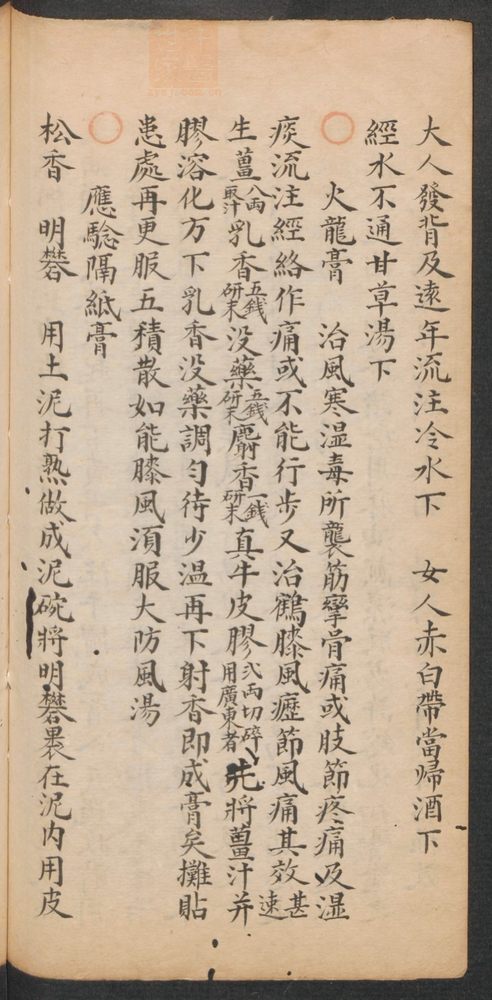 大人發背及遠年流注冷水下　女人赤白帶當歸酒下
經水不通甘草湯下
火龍膏　治風寒湿毒所襲筋攣骨痛或肢節疼痛及湿
痰流注經絡作痛或不能行步又治鶴膝風癧節風痛其效甚速
生薑八両取汁乳香五錢研末没藥五錢研末麝香一錢研末真牛皮膠弍両切碎用廣東者先將薑汁并
膠溶化方下乳香没藥調匀待少温再下射香即成膏矣攤貼
患處再更服五積散如能膝風湏服大防風湯
應騐隔紙膏
松香　明礬　用土泥打熟做成泥碗將明礬裹在泥内用皮